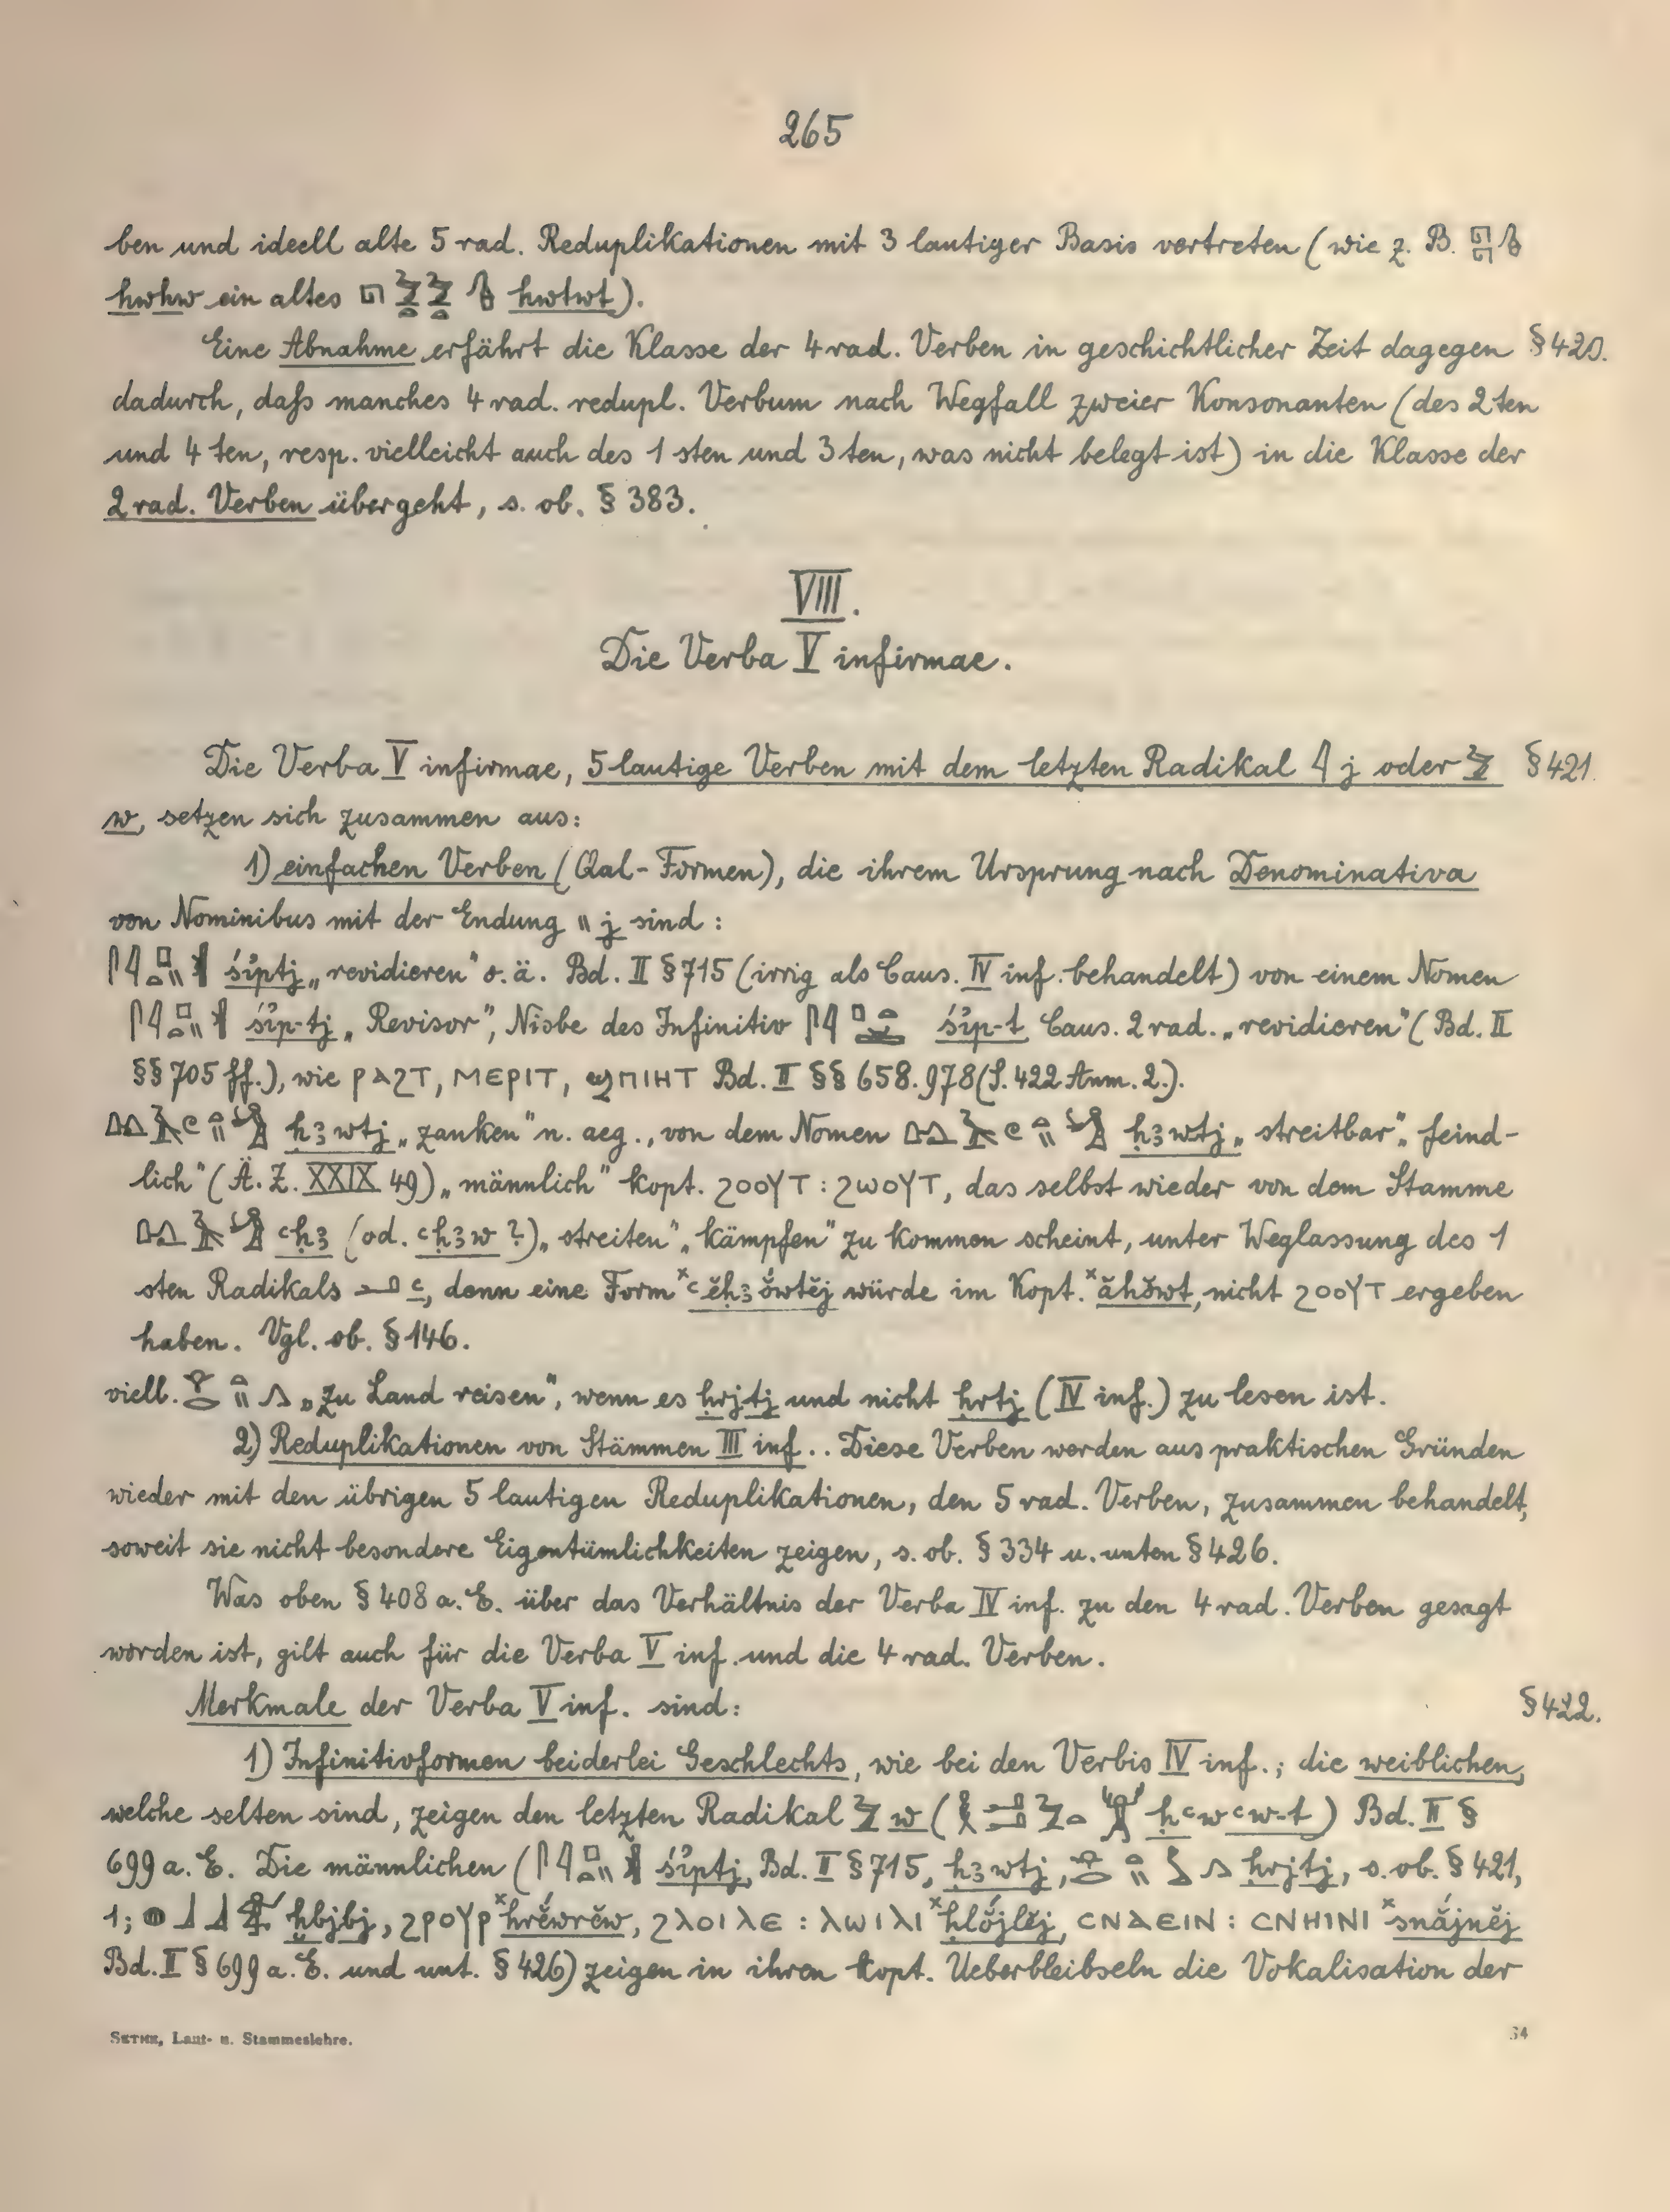 265
ben und ideell alte 5 rad. Reduplikationen mit 3 lautiger Basis vertreten (wie z. B.
hwhw ein altes hwtwt).
Eine Abnahme erfährt die Klasse der 4 rad. Verben in geschichtlicher Zeit dagegen § 420.
dadurch, daß manches 4 rad. redupl. Verbum nach Wegfall zweier Konsonanten (des 2 ten
und 4 ten, resp. vielleicht auch des 1 sten und 3 ten, was nicht belegt ist) in die Klasse der
2 rad. Verben übergeht, s. ob. § 383.
VIII.
Die Verba V infirmae.
Die Verba V infirmae, 5 lautige Verben mit dem letzten Radikal 𓇋 j oder 𓅱 § 421.
w, setzen sich zusammen aus:
1) einfachen Verben (Qal-Formen), die ihrem Ursprung nach Denominativa
von Nominibus mit der Endung 𓏭 j sind:
śı͗ptj „revidieren" o. ä. Bd. II § 715 (irrig als Caus. IV inf. behandelt) von einem Nomen
śı͗p-tj „Revisor", Nisbe des Infinitiv śı͗p-t Caus. 2 rad. „revidieren" (Bd. II
§§ 705 ff.), wie ⲣⲁϩⲧ, ⲙⲉⲣⲓⲧ, ϣⲡⲓⲏⲧ Bd. II §§ 658. 978 (S. 422 Anm. 2.).
ḥꜣwtj „zanken" n. aeg., von dem Nomen ḥꜣwtj „streitbar", „feind-
lich" (Ä. Z. XXIX 49) „männlich" kopt. ϩⲟⲟⲩⲧ : ϩⲱⲟⲩⲧ, das selbst wieder von dem Stamme
ꜥḥꜣ (od. ꜥḥꜣw ?) „streiten" „kämpfen" zu kommen scheint, unter Weglassung des 1
sten Radikals 𓂝 ꜥ, denn eine Form ˣꜥĕḥꜣŏ́wtĕj würde im Kopt. ˣăhŏ́wt, nicht ϩⲟⲟⲩⲧ ergeben
haben. Vgl. ob. § 146.
viell. „zu Land reisen", wenn es ḥrjtj und nicht ḥrtj (IV inf.) zu lesen ist.
2) Reduplikationen von Stämmen III inf.. Diese Verben werden aus praktischen Gründen
wieder mit den übrigen 5 lautigen Reduplikationen, den 5 rad. Verben, zusammen behandelt,
soweit sie nicht besondere Eigentümlichkeiten zeigen, s. ob. § 334 u. unten § 426.
Was oben § 408 a. E. über das Verhältnis der Verba IV inf. zu den 4 rad. Verben gesagt
worden ist, gilt auch für die Verba V inf. und die 4 rad. Verben.
Merkmale der Verba V inf. sind: § 422.
1) Infinitivformen beiderlei Geschlechts, wie bei den Verbis IV inf.; die weiblichen,
welche selten sind, zeigen den letzten Radikal 𓅱 w (ḥꜥwꜥw-t) Bd. II §
699 a. E. Die männlichen (śı͗ptj, Bd. II § 715, ḥꜣwtj, ḥrjtj, s. ob. § 421,
1; ḫbjbj, ϩⲣⲟⲩⲣ ˣhrĕ́wrĕw, ϩⲗⲟⲓⲗⲉ : ⲗⲱⲓⲗⲓ ˣhlŏ́jlĕj, ⲥⲛⲁⲉⲓⲛ : ⲥⲛⲏⲓⲛⲓ ˣsnắjnĕj
Bd. II § 699 a. E. und unt. § 426) zeigen in ihren kopt. Ueberbleibseln die Vokalisation der
SETHE, Laut- u. Stammeslehre. 34